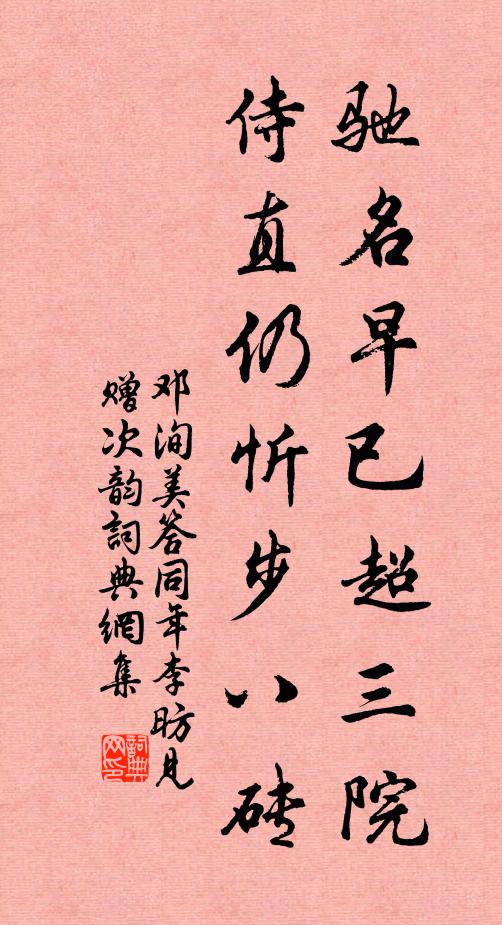 驰名早已超三院
侍直仍忻步八砖
邓洵美答同年李昉见
赠次韵詞典網集
詞典
网印